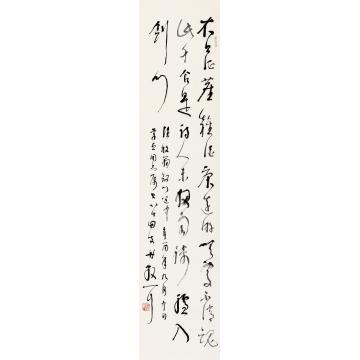 衣上征塵雜酒痕遠游無處不消魂
此身合是詩人未細雨騎驢入
劍門
陸放翁劍門道中辛酉年九月
同志